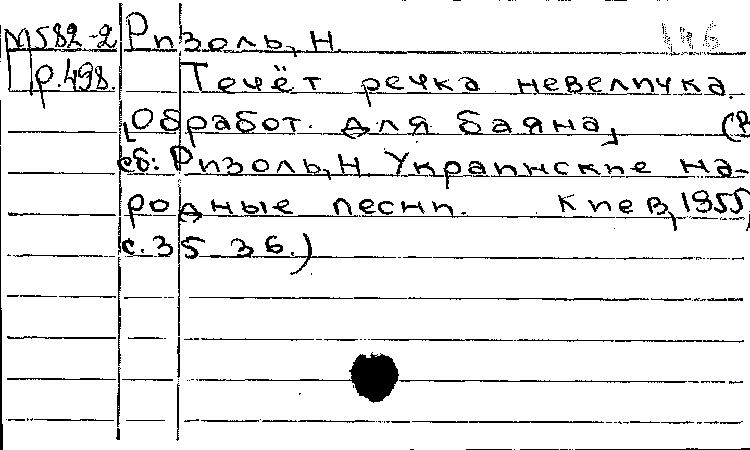 М582-2 Ризоль, Н. 146
р.498. Течёт речка невеличка.
[Обработ. для баяна] (В
сб: Ризоль, Н. Украинские на-
родные песни. Киев, 1955,
с. 35-36.)